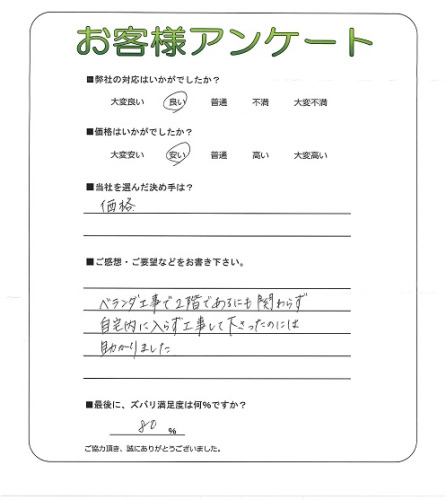 お客様アンケート
■弊社の対応はいかがでしたか？
大変良い 良い 普通 不満 大変不満
■価格はいかがでしたか？
大変安い 安い 普通 高い 大変高い
■当社を選んだ決め手は？
価格
■ご感想・ご要望などをお書き下さい。
ベランダ工事で2階であるにも関わらず
自宅内に入らず工事して下さったのには
助かりました
■最後に、ズバリ満足度は何％ですか？
80 %
ご協力頂き、誠にありがとうございました。